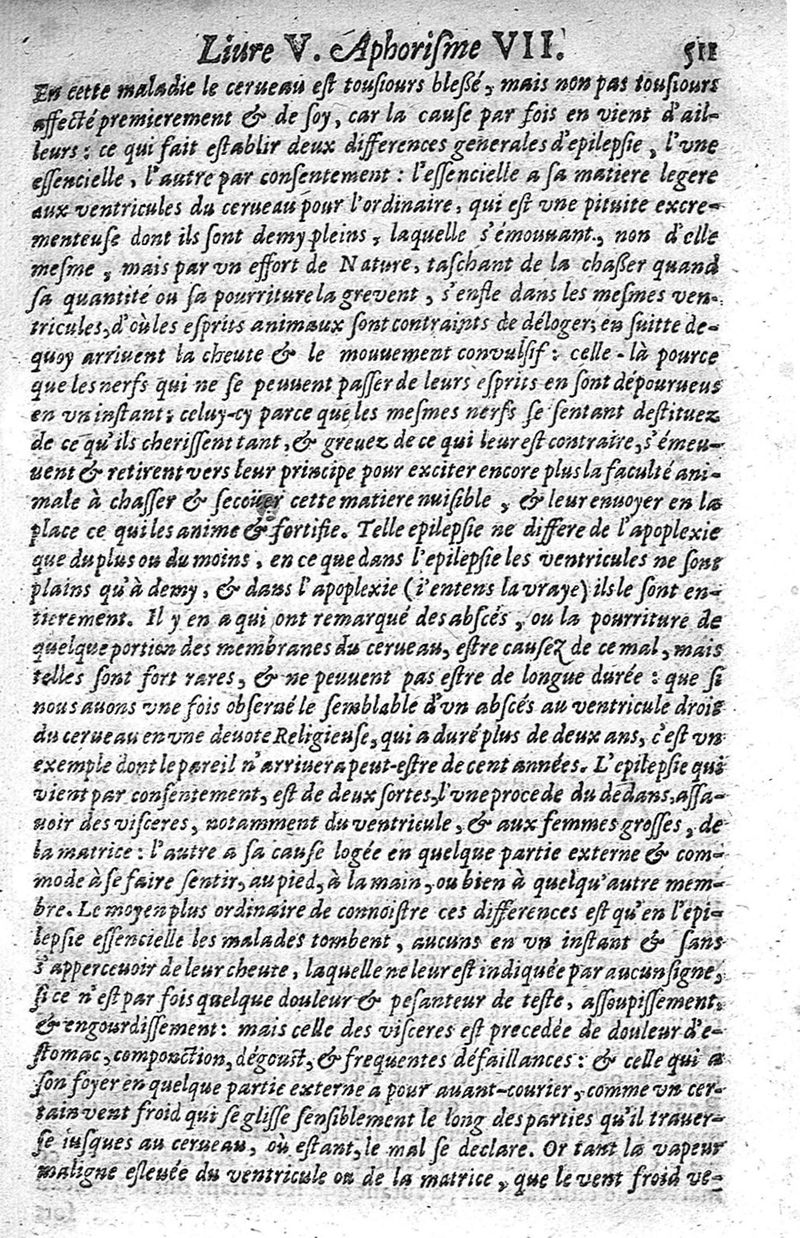 Liure V. Aphoriſme VII. 511
En cette maladie le cerueau eſt touſiours bleßé, mais non pas touſiours
affecté premierement & de ſoy, car la cauſe par fois en vient d'ail-
leurs: ce qui fait eſtablir deux differences generales d'epilepſie, l'vne
eſſencielle, l'autre par conſentement: l'eſſencielle a ſa matiere legere
aux ventricules du cerueau pour l'ordinaire, qui eſt vne pituite excre-
menteuſe dont ils ſont demy pleins, laquelle s'émouuant, non d'elle
meſme, mais par vn effort de Nature, taſchant de la chaßer quand
ſa quantité ou ſa pourriture la greuent, s'enfle dans les meſmes ven-
tricules, d'où les eſprits animaux ſont contraints de déloger; en ſuitte de-
quoy arriuent la cheute & le mouuement conuulſif: celle-là pource
que les nerfs qui ne ſe peuuent paſſer de leurs eſprits en ſont dépourueus
en vn inſtant; celuy-cy parce que les meſmes nerfs ſe ſentant deſtituez
de ce qu'ils cheriſſent tant, & greuez de ce qui leur eſt contraire, s'émeu-
uent & retirent vers leur principe pour exciter encore plus la faculté ani-
male à chaſſer & ſecoüer cette matiere nuiſible, & leur enuoyer en la
place ce qui les anime & fortifie. Telle epilepſie ne differe de l'apoplexie
que du plus ou du moins, en ce que dans l'epilepſie les ventricules ne ſont
plains qu'à demy, & dans l'apoplexie (i'entens la vraye) ils le ſont en-
tierement. Il y en a qui ont remarqué des abſcés, ou la pourriture de
quelque portion des membranes du cerueau, eſtre cauſez de ce mal, mais
telles ſont fort rares, & ne peuuent pas eſtre de longue durée: que ſi
nous auons vne fois obſerué le ſemblable d'vn abſcés au ventricule droit
du cerueau en vne deuote Religieuſe, qui a duré plus de deux ans, c'eſt vn
exemple dont le pareil n'arriuera peut-eſtre de cent années. L'epilepſie qui
vient par conſentement, eſt de deux ſortes, l'vne procede du dedans, aſſa-
uoir des viſceres, notamment du ventricule, & aux femmes groſſes, de
la matrice: l'autre a ſa cauſe logée en quelque partie externe & com-
mode à ſe faire ſentir, au pied, à la main, ou bien à quelqu'autre mem-
bre. Le moyen plus ordinaire de connoiſtre ces differences eſt qu'en l'epi-
lepſie eſſencielle les malades tombent, aucuns en vn inſtant & ſans
s'apperceuoir de leur cheute, laquelle ne leur eſt indiquée par aucun ſigne,
ſi ce n'eſt par fois quelque douleur & peſanteur de teſte, aſſoupiſſement,
& engourdiſſement: mais celle des viſceres eſt precedée de douleur d'e-
ſtomac, componction, dégouſt, & frequentes défaillances: & celle qui a
ſon foyer en quelque partie externe a pour auant-courier, comme vn cer-
tain vent froid qui ſe gliſſe ſenſiblement le long des parties qu'il trauer-
ſe iuſques au cerueau, où eſtant, le mal ſe declare. Or tant la vapeur
maligne eſleuée du ventricule ou de la matrice, que le vent froid ve-